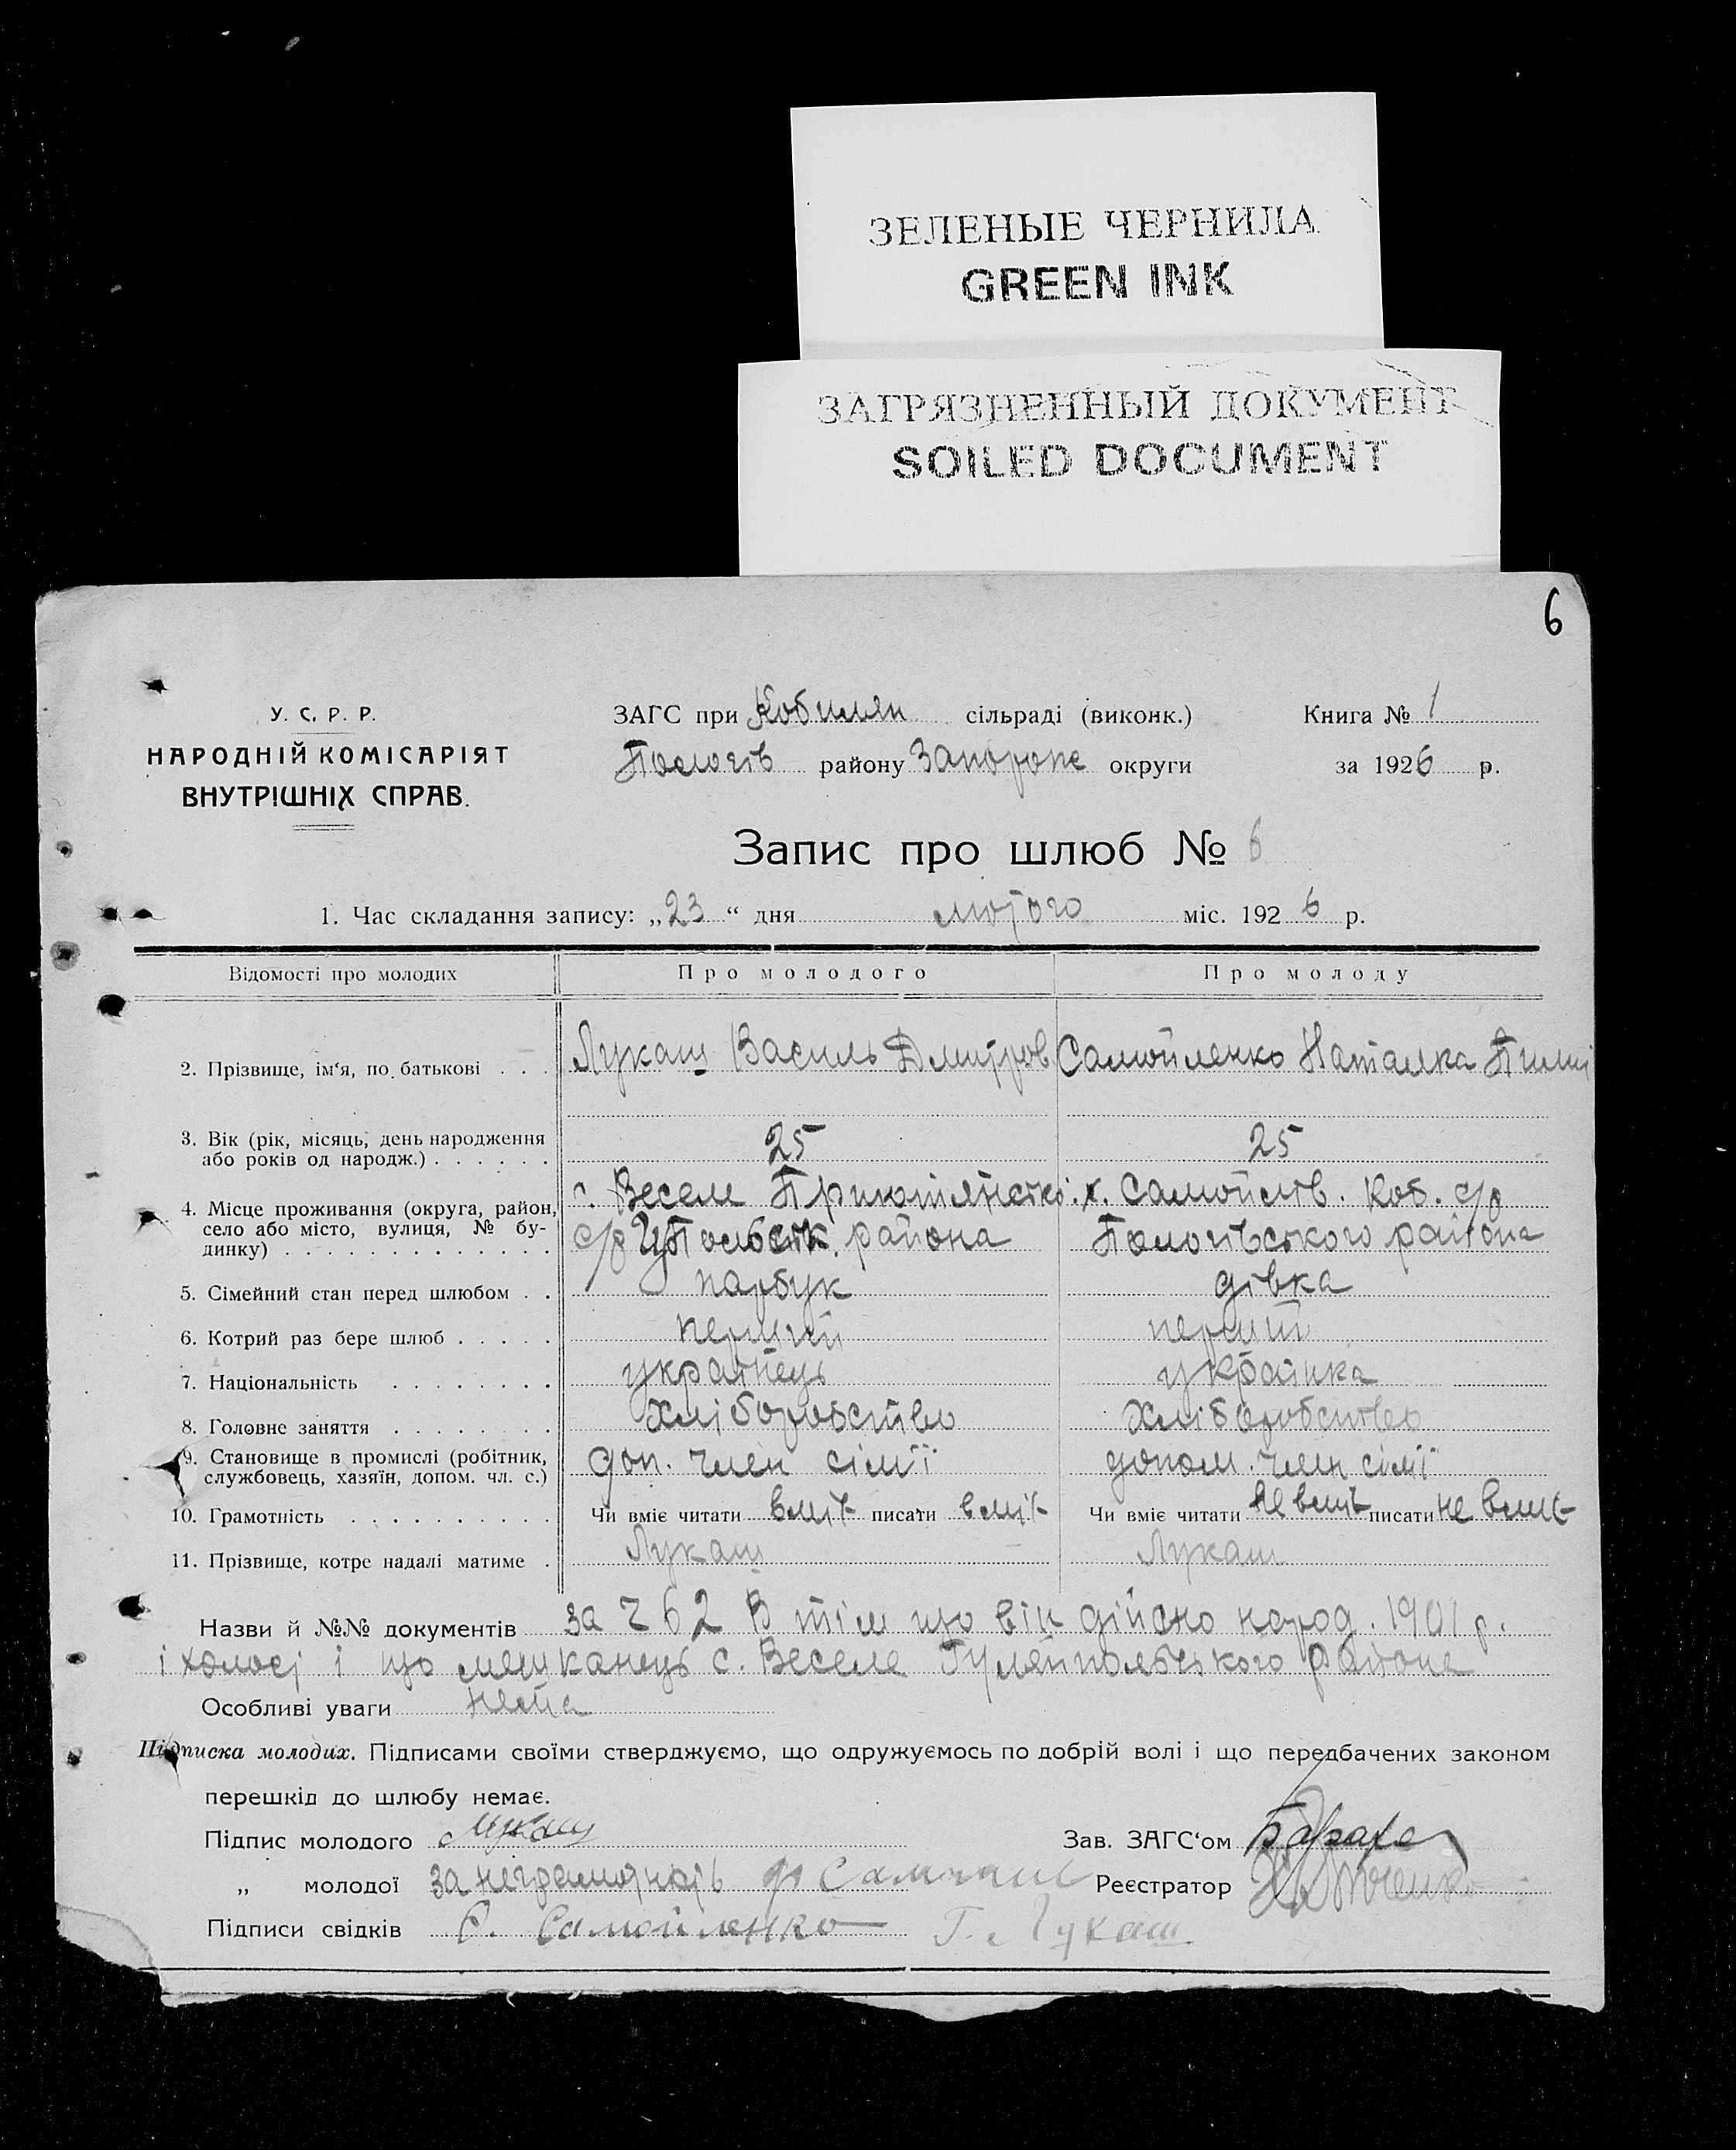 ЗЕЛЕНЫЕ ЧЕРНИЛА
GREEN INK
ЗАГРЯЗНЕННЫЙ ДОКУМЕНТ
SOILED DOCUMENT
6
У. С. Р. Р.
НАРОДНІЙ КОМІСАРІЯТ
ВНУТРІШНІХ СПРАВ.
ЗАГС при Кобилян сільраді (виконк.) Книга № 1
Пологів району Запорож округи за 1926 р.
Запис про шлюб № 6
1. Час складання запису: „23“ дня лютого міс. 1926 р.
Відомості про молодих Про молодого Про молоду
2. Прізвище, ім'я, по батькові . . . Лукаш Василь Дмитров Самойленко Наталка Пили
3. Вік (рік, місяць, день народження
або років од народж.) . . . . . . 25 25
4. Місце проживання (округа, район, с. Веселе х. Самойлів. Коб. с/р
село або місто, вулиця, № бу- с/р района Пологівського района
динку) . . . . . . . . . . . . .
5. Сімейний стан перед шлюбом . . парубук дівка
6. Котрий раз бере шлюб . . . . . перший перший
7. Національність . . . . . . . . українець українка
8. Головне заняття . . . . . . . . хліборобство хліборобство
9. Становище в промислі (робітник, доп. член сімїї допом. член сімїї
службовець, хазяїн, допом. чл. с.)
10. Грамотність . . . . . . . . . . Чи вміє читати вміє писати вміє Чи вміє читати не вміє писати не вміє
11. Прізвище, котре надалі матиме . Лукаш Лукаш
Назви й №№ документів за Ч 62 В тім що він дійсно народ. 1901 р.
і холост і що мешканець с. Веселе Гуляйпольського района
Особливі уваги нема
Підписка молодих. Підписами своїми стверджуємо, що одружуємось по добрій волі і що передбачених законом
перешкід до шлюбу немає.
Підпис молодого Лукаш Зав. ЗАГС'ом
„ молодої за неграмотність Реєстратор
Підписи свідків С. Самойленко Г. Лукаш